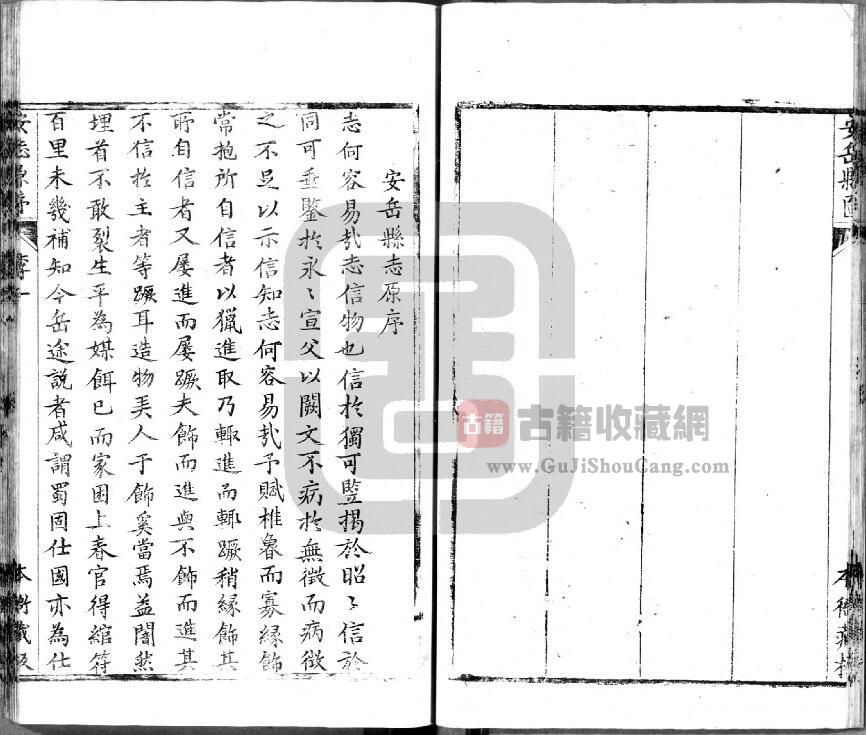 安岳縣圖
本衙藏板
安岳縣志原序
志何容易哉志信物也信於獨可監揭於昭〻信於
同可垂鑒於永〻宣父以闕文不病於無徵而病徵
之不足以示信知志何容易哉予賦椎魯而寡緣飾
常抱所自信者以獵進取乃輒進而輒蹶稍緣飾其
所自信者又屢進而屢蹶夫飾而進與不飾而進其
不信於主者等蹶耳造物美人于飾奚當焉益闇然
埋首不敢裂生平為媒餌已而家困上春官得綰符
百里未幾補知令岳途說者咸謂蜀固仕國亦為仕
安志原序
序一
本衙藏板
古籍
古籍收藏網
www.GuJiShouCang.com